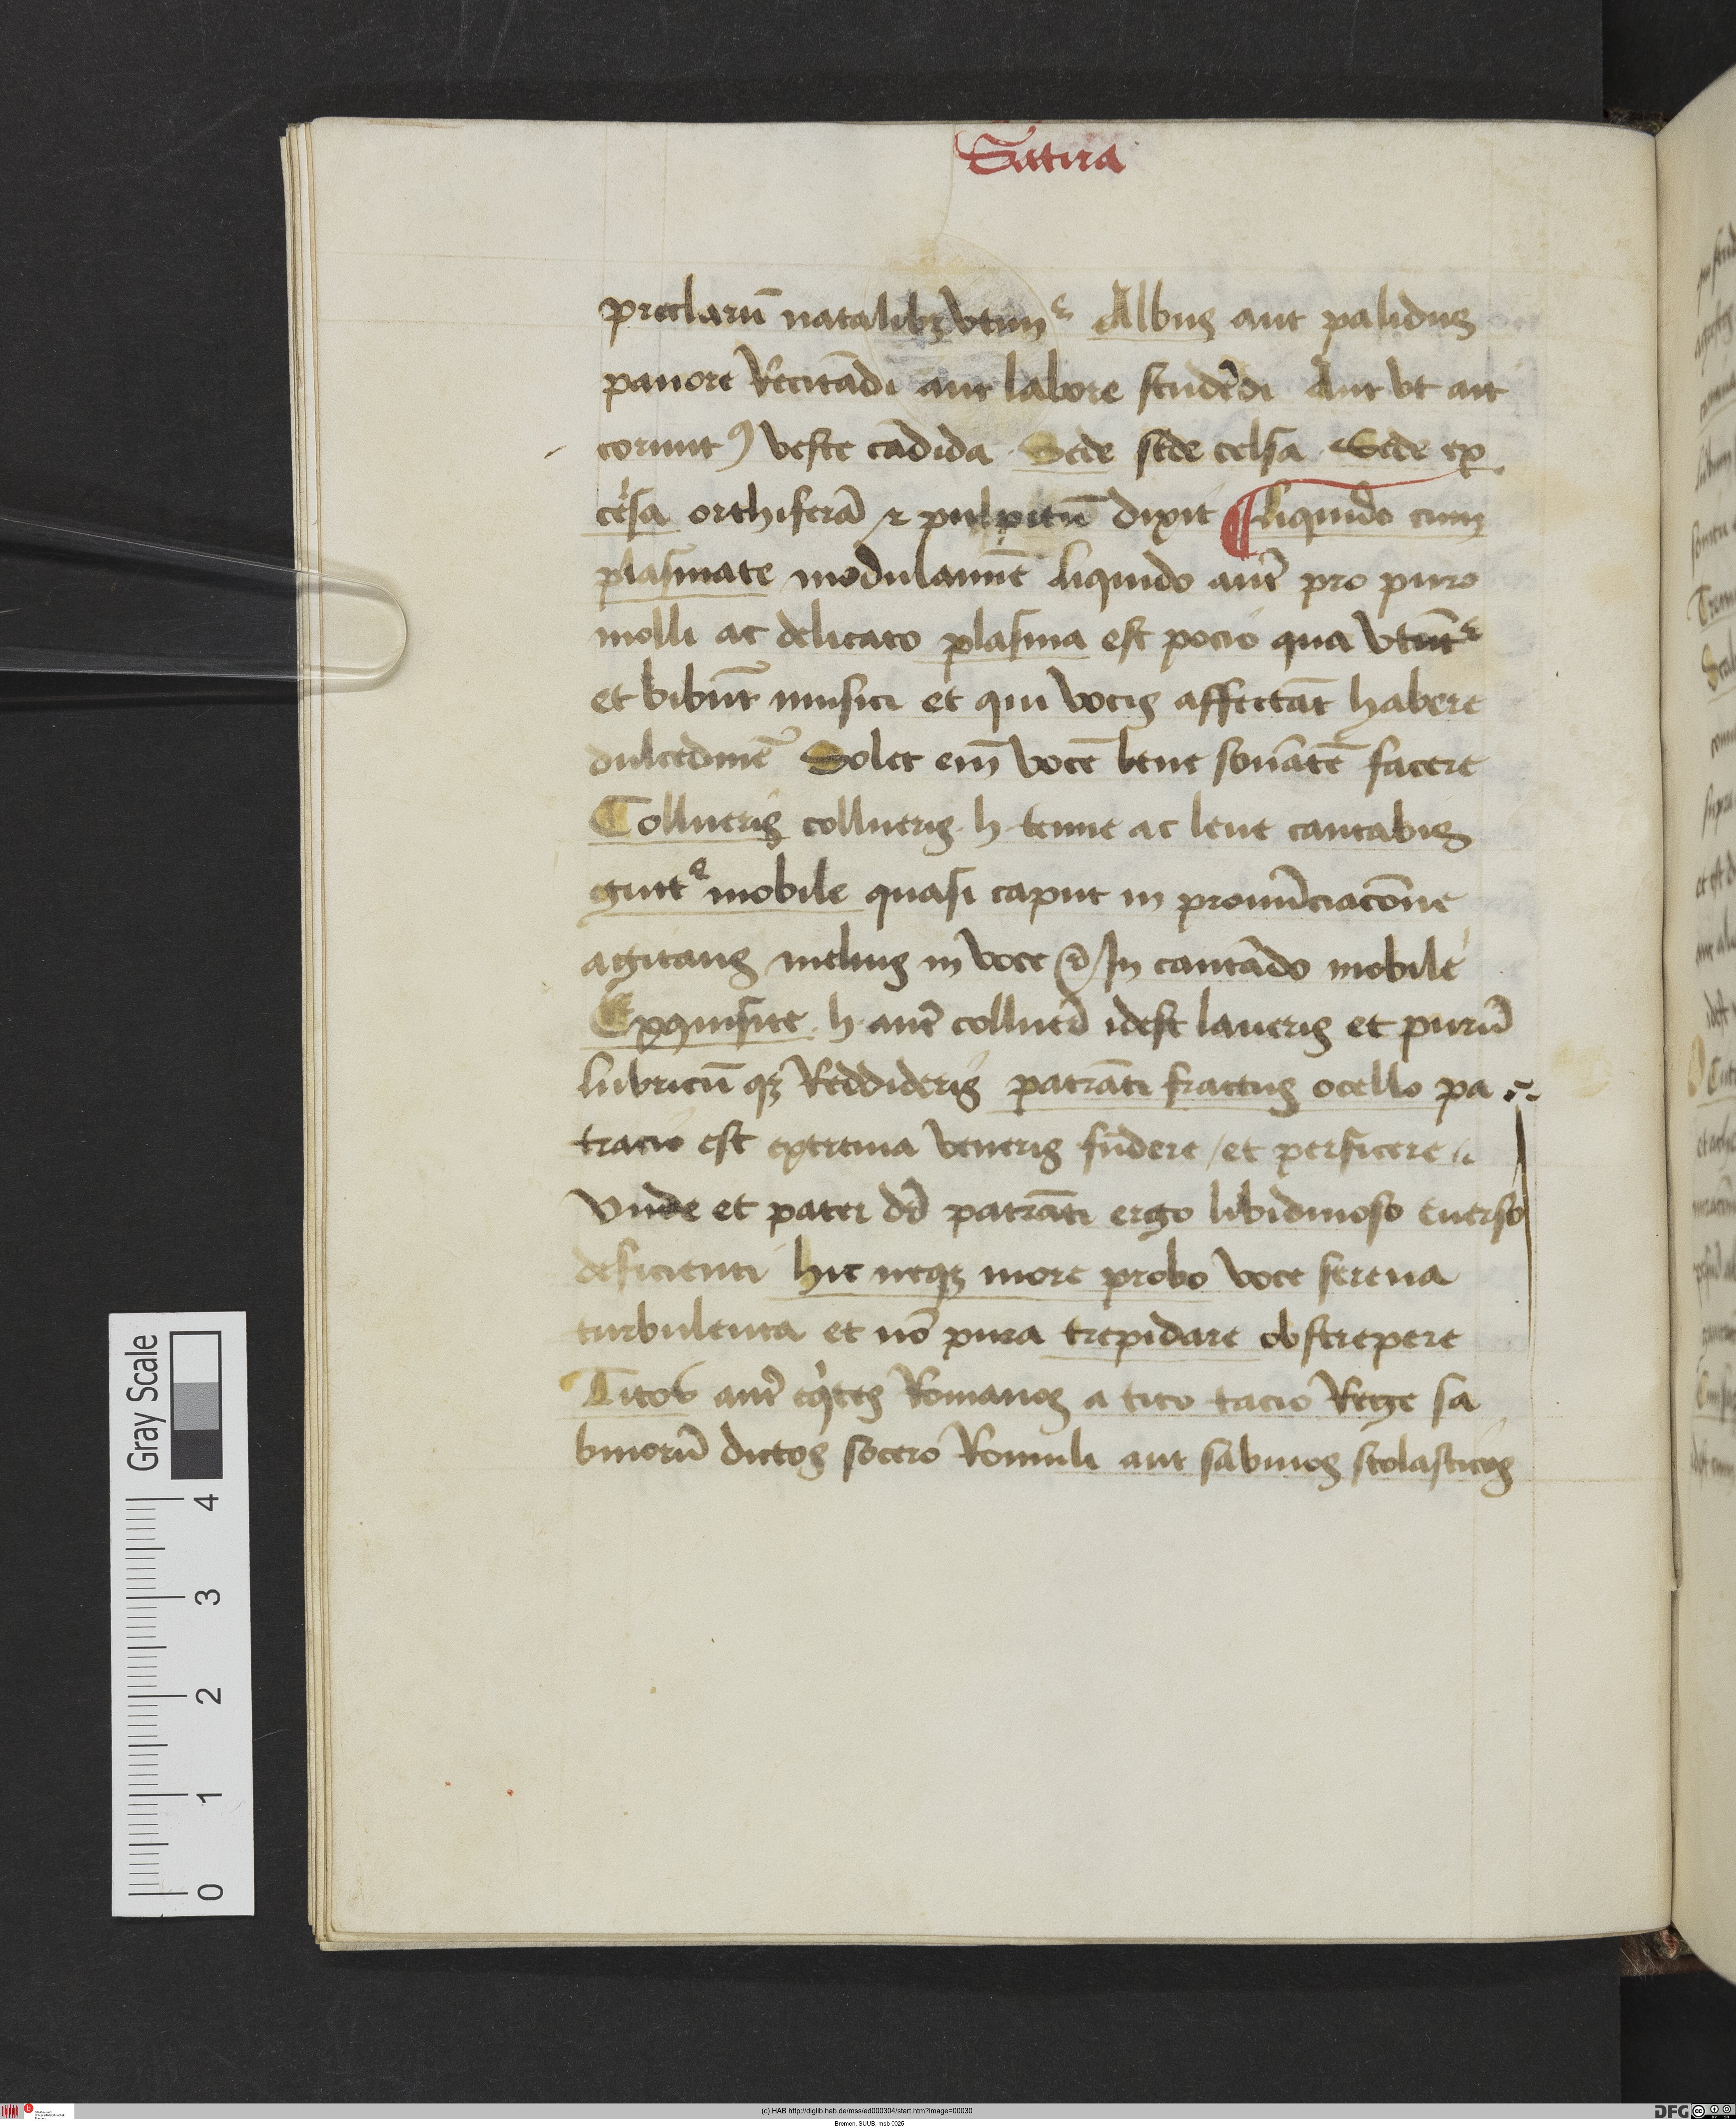 Satira
preclarū natalibꝫ vtim᷑ Albus aut palidus
pauore Recitādi aut labore studēdi Aut vt ait
corunt9 veste cādida Sede sede celsa Sede ex
cēlsa orthiferā ⁊ pulpitū dixit ¶ liquido cum
plasmate modulamīe liquido autē pro puro
molli ac delicato plasma est pocio qua vtūt᷑
et bibūt musici et qui vocis affectāt habere
dulcedinē Solet eim̄ vocē bene sonātē facere
Collueris collueris h tenue ac leue cantabis
gutt᷑e mobile quasi caput in pronūciacōne
agitans melius in voce (d) In cantādo mobile
Exquisite h autē colluerꝭ idest laueris et purū
lubricū qꝫ Reddideris patrāti fractus ocello pa
tracio est extrema veneris fūdere / et perficere
vnde et pater dꝛ patrāti ergo libidinoso euerso
deficienti hic neqꝫ more probo voce serena
turbulenta et nō pura trepidare obstrepere
Titos autē eq̇tes Romanos a tito tacio Rege sa
binorū dictos socero Romuli aut sabinos scolasticos
Gray Scale
4
3
2
1
0
(c) HAB http://diglib.hab.de/mss/ed000304/start.htm?image=00030
Bremen, SUUB, msb 0025
DFG